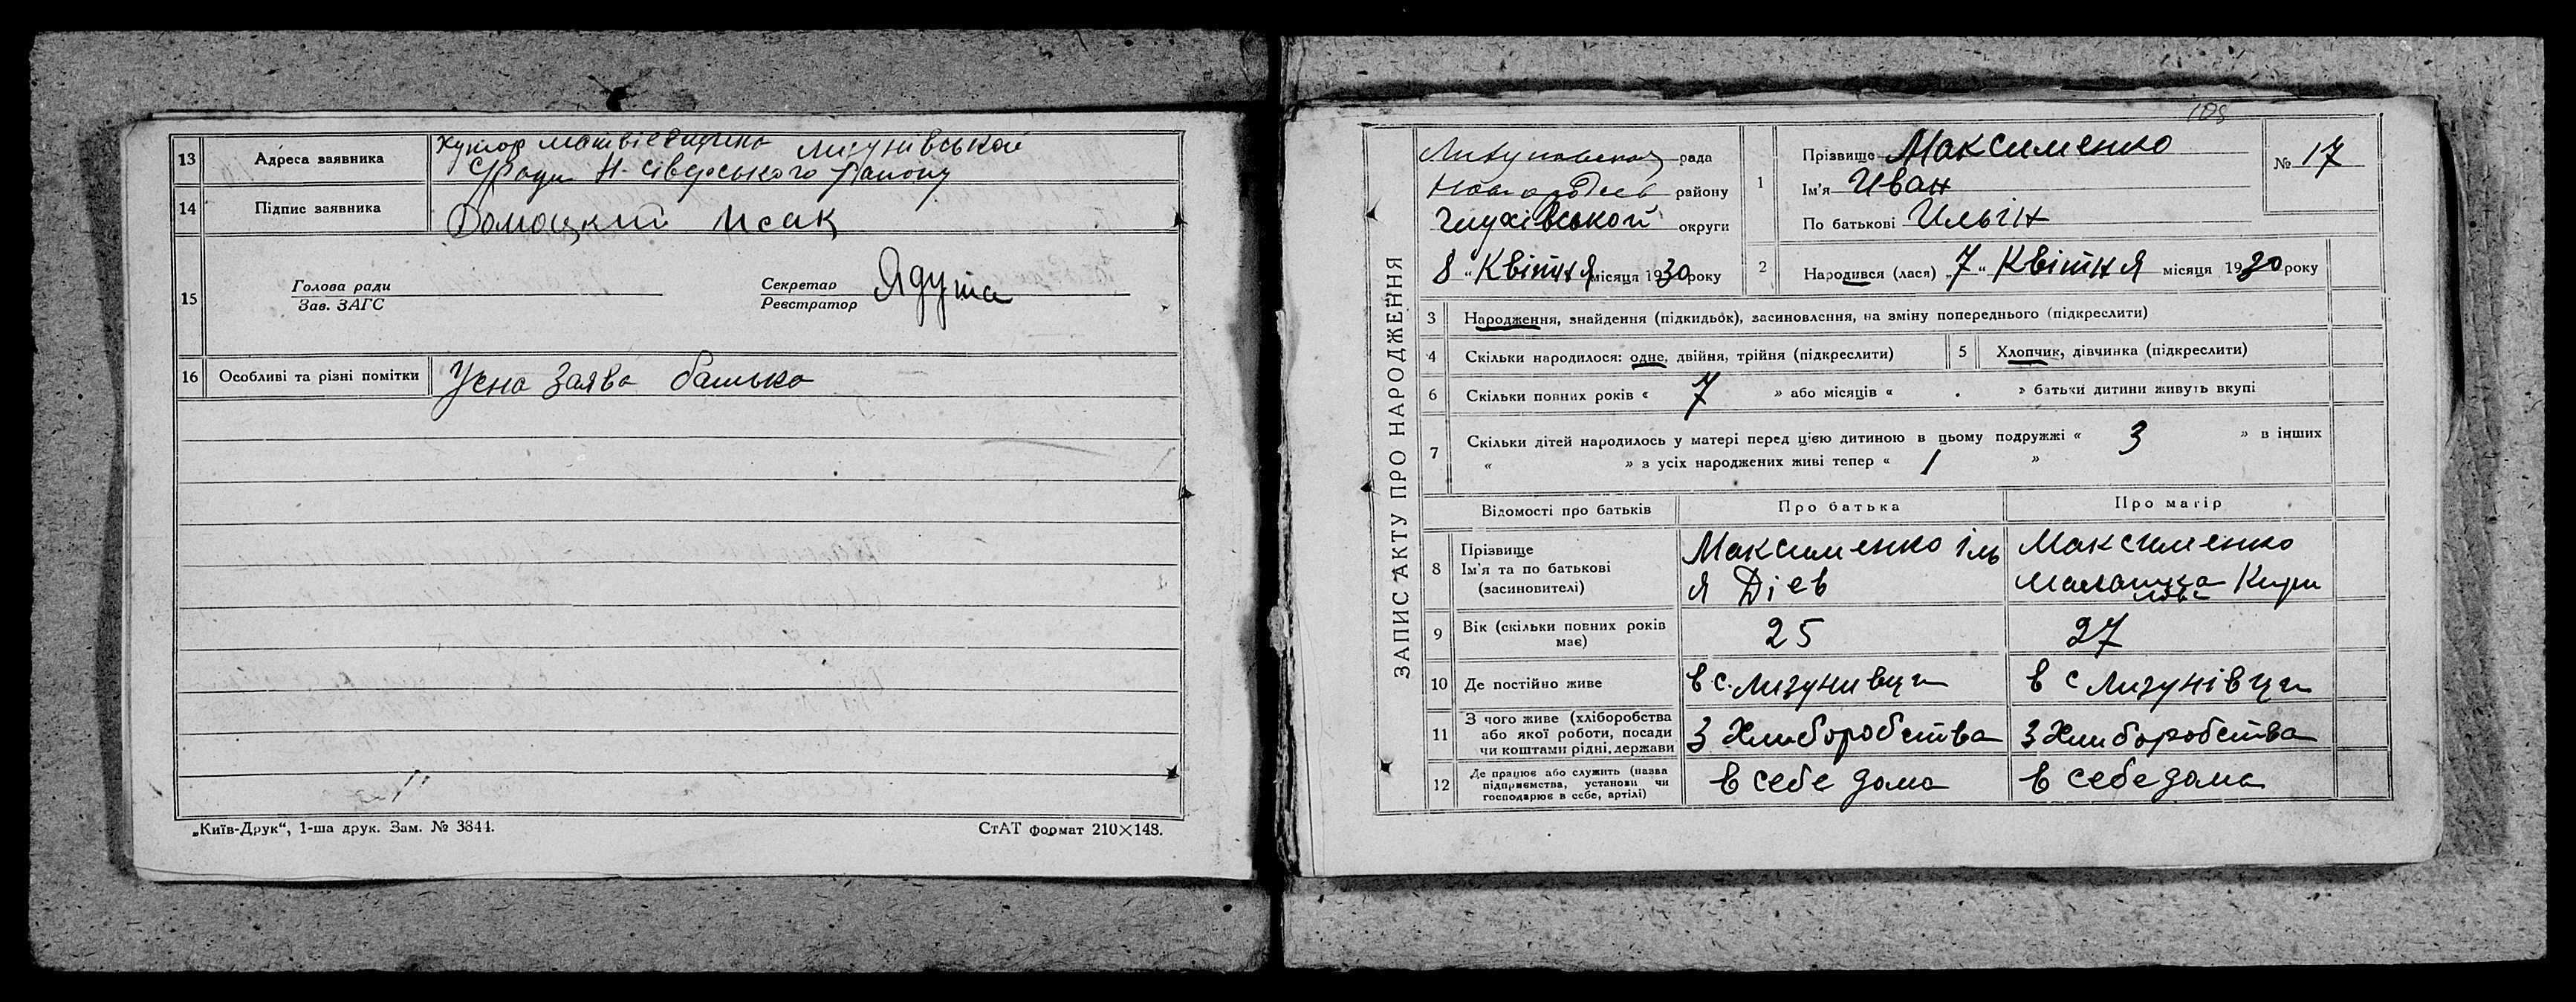 13 Адреса заявника хутор Матвіевщина Лизунівськой
Сради Н-Сіверського Району
14 Підпис заявника Домоцкий Исак
15 Голова ради
Зав. ЗАГС
Секретар
Реєстратор Ядута
16 Особливі та різні помітки Усна заява батька
„Київ-Друк“, 1-ша друк. Зам. № 3844. СтАТ формат 210×148.
109
ЗАПИС АКТУ ПРО НАРОДЖЕННЯ
рада
району
Глухівськой округи
8 “ Квітня місяця 1930 року
1 Прізвище Максименко
Ім'я Иван
По батькові Ильін
№ 17
2 Народився (лася) „ 7 “ Квітня місяця 1930 року
3 Народження, знайдення (підкидьок), засиновлення, на зміну попереднього (підкреслити)
4 Скільки народилося: одне, двійня, трійня (підкреслити) 5 Хлопчик, дівчинка (підкреслити)
6 Скільки повних років « 7 » або місяців « » батьки дитини живуть вкупі
7 Скільки дітей народилось у матері перед цією дитиною в цьому подружжі « 3 » в інших
« » з усіх народжених живі тепер « 1 »
Відомості про батьків Про батька Про матір
8 Прізвище
Ім'я та по батькові
(засиновителі)
Максименко Іль
я Діев
Максименко
Малашка Кири
лова
9 Вік (скільки повних років
має) 25 27
10 Де постійно живе в с. Лизунивци в с Лизунівци
11 З чого живе (хліборобства
або якої роботи, посади
чи коштами рідні, держави
З Хлиборобства З Хлиборобства
12 Де працює або служить (назва
підприємства, установи чи
господарює в себе, артілі)
в себе дома в себе дома